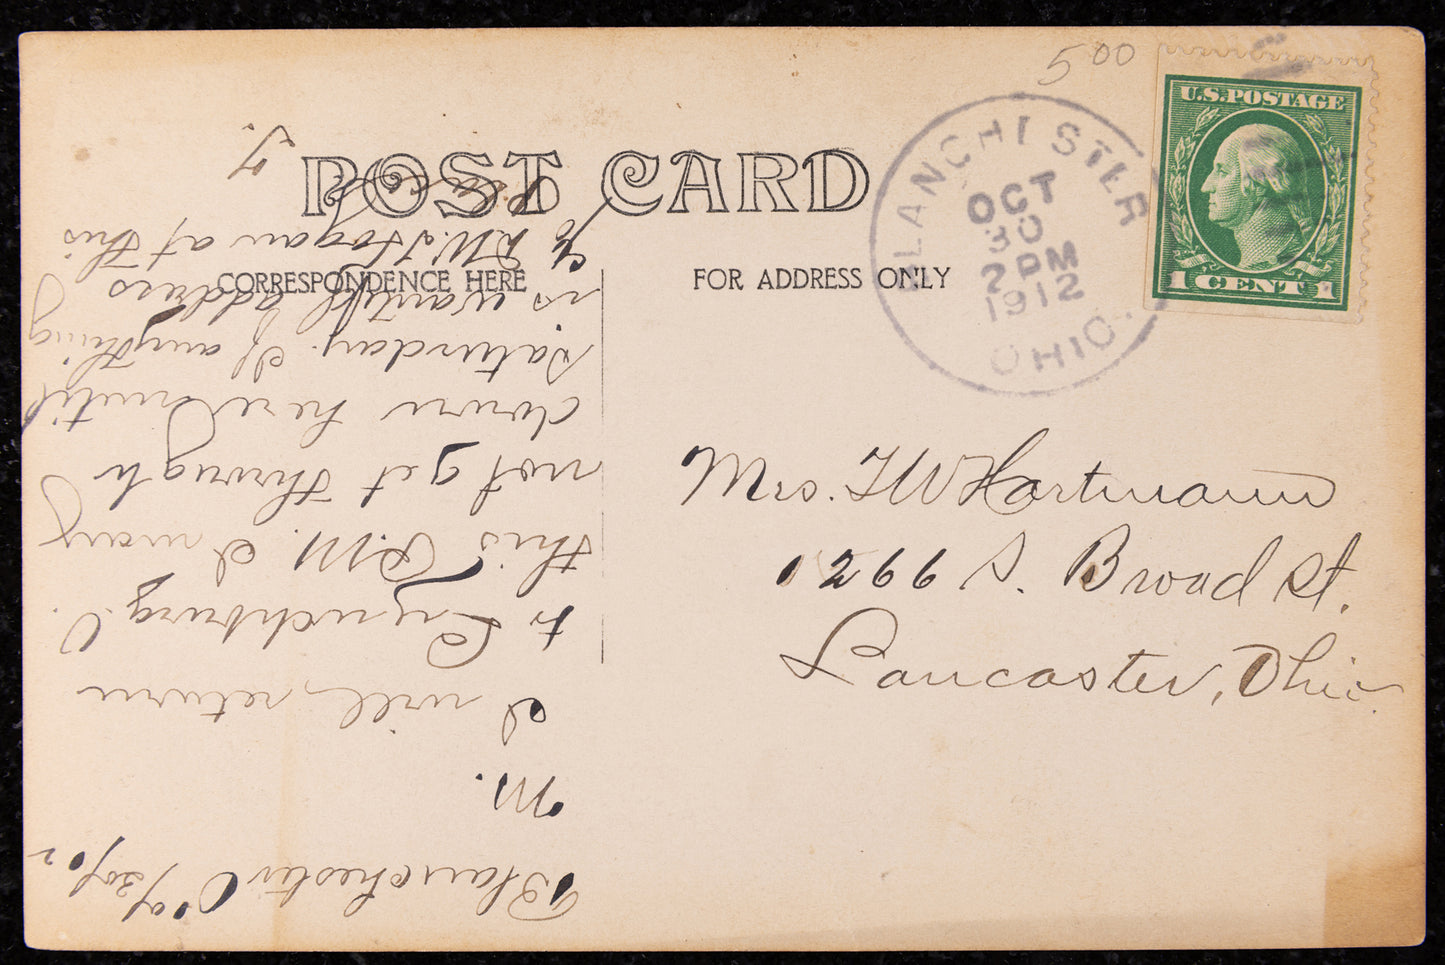 5 00
U.S. POSTAGE
1 CENT 1
BLANCHESTER
OCT
30
2 PM
1912
OHIO.
POST CARD
CORRESPONDENCE HERE
FOR ADDRESS ONLY
Mrs. F W Hartmann
1266 S. Broad St.
Lancaster, Ohio.
Blanchester O
M.
I will return
to Lynchburg O.
this P.M. I may
not get through
down here until
Saturday. If anything
is wanted address
% D.W. Hogan at this
place
F.